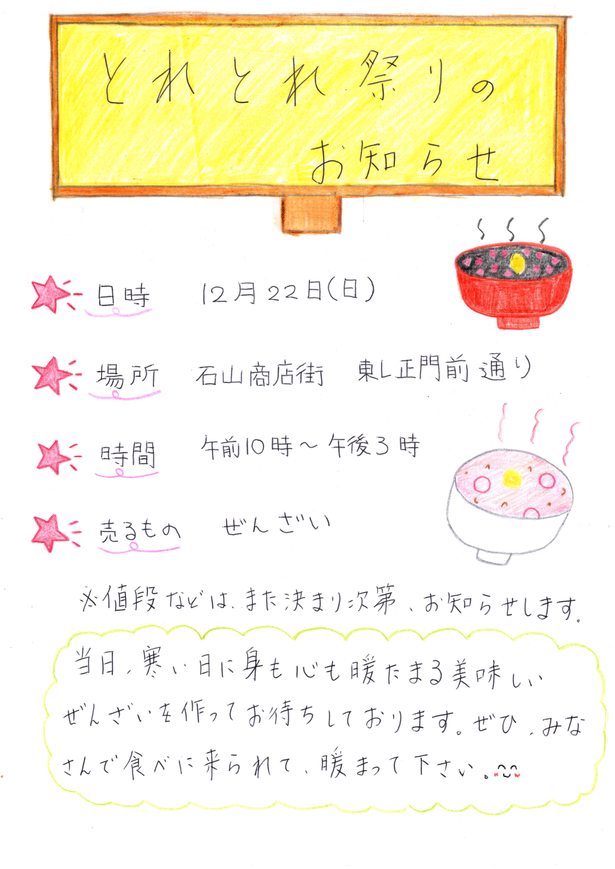 とれとれ祭りの
お知らせ
日時 12月22日(日)
場所 石山商店街 東レ正門前通り
時間 午前10時～午後3時
売るもの ぜんざい
※値段などは、また決まり次第、お知らせします。
当日、寒い日に身も心も暖たまる美味しい
ぜんざいを作ってお待ちしております。ぜひ、みな
さんで食べに来られて、暖まって下さい。